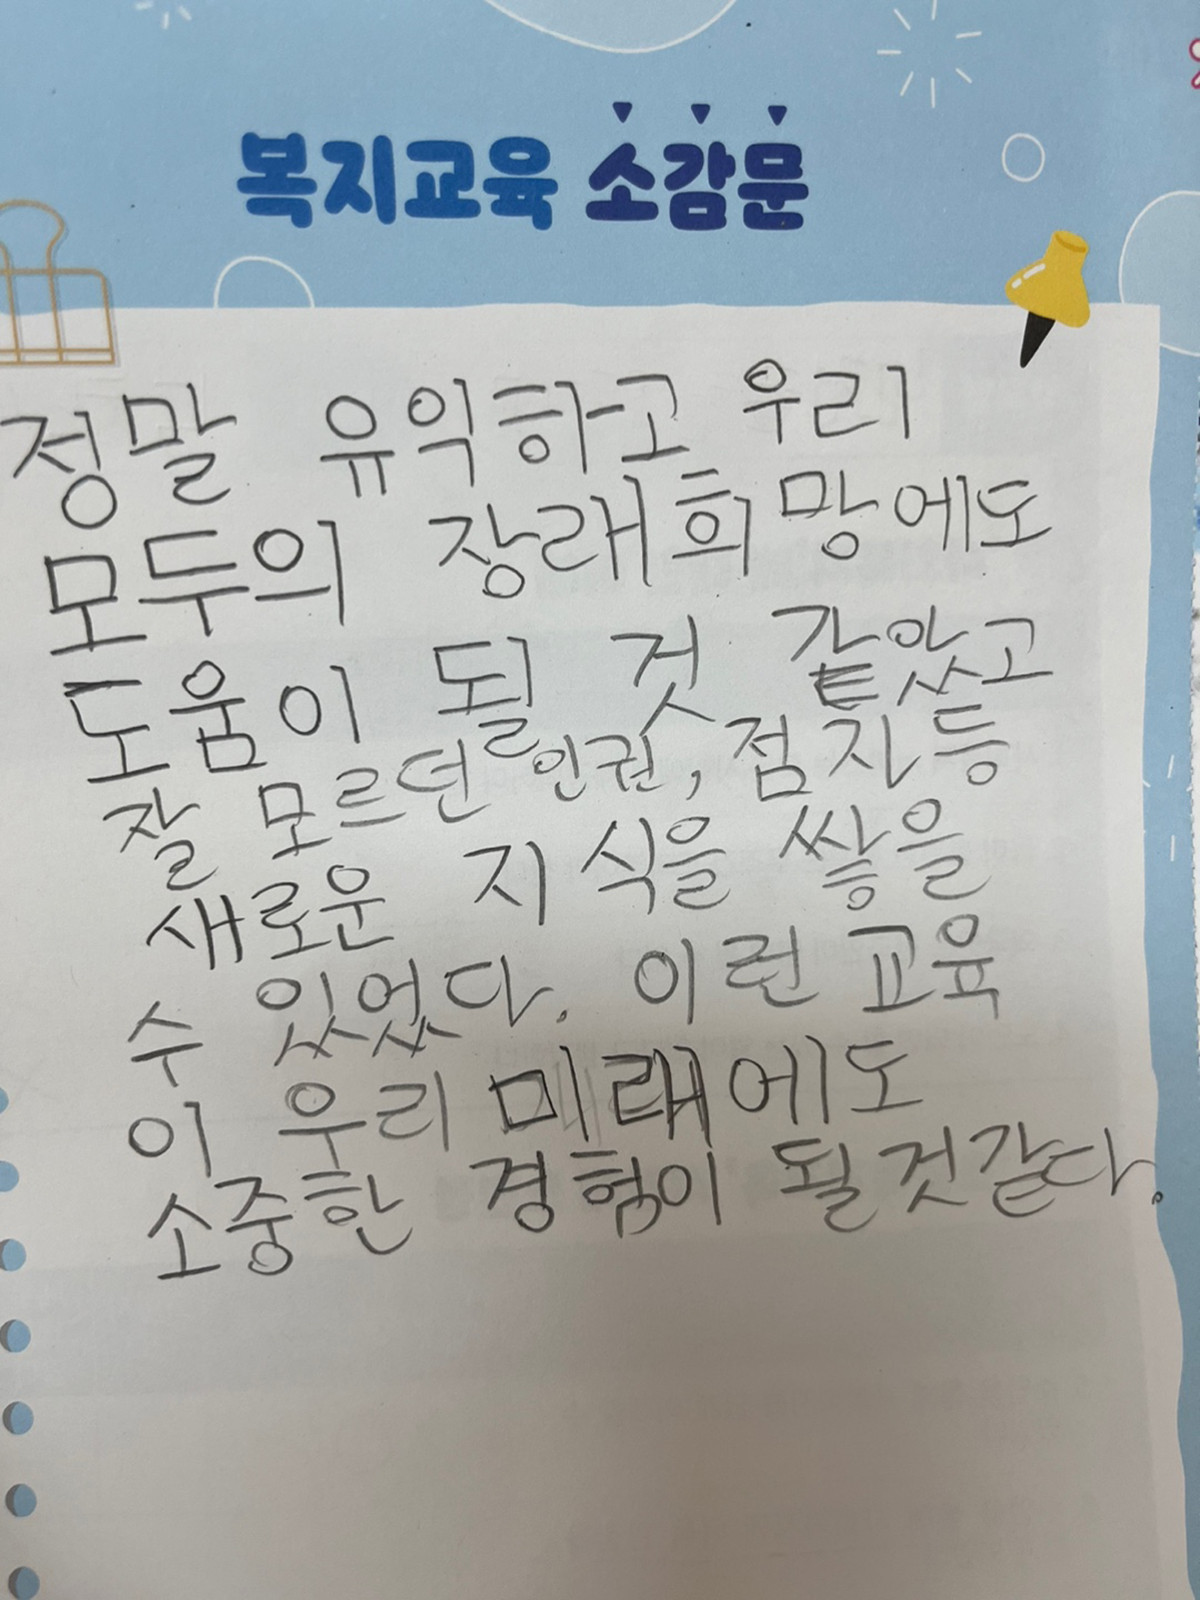 복지교육 소감문
정말 유익하고 우리
모두의 장래희망에도
도움이 될 것 같았고
잘 모르던 인권, 점자등
새로운 지식을 쌓을
수 있었다. 이런 교육
이 우리 미래에도
소중한 경험이 될것같다.